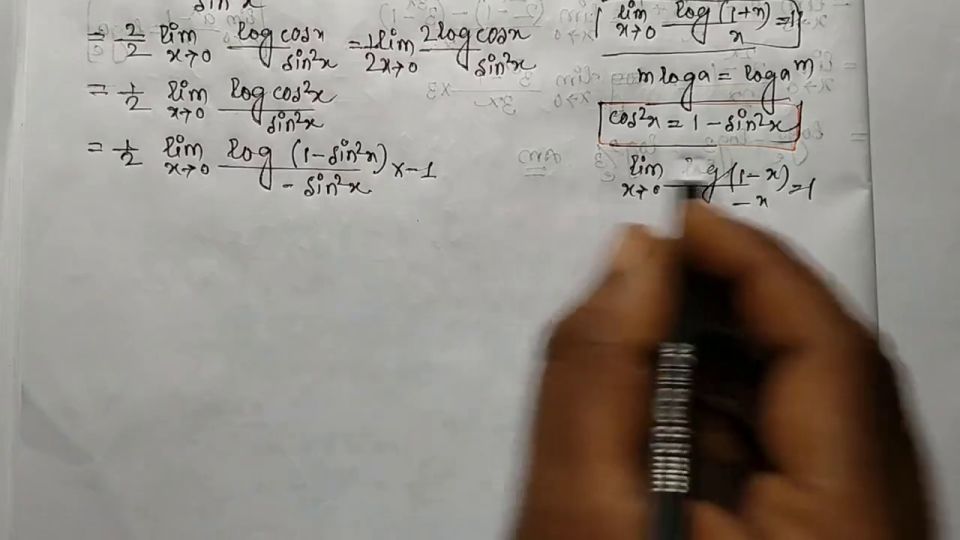 sin²x
= 2/2 lim x→0 log cosx / sin²x = 1/2 lim x→0 2 log cosx / sin²x
= 1/2 lim x→0 log cos²x / sin²x
= 1/2 lim x→0 log (1-sin²x) / -sin²x × -1
lim x→0 log (1+x) / x = 1
m log a = log a^m
cos²x = 1 - sin²x
lim x→0 log (1-x) / -x = 1